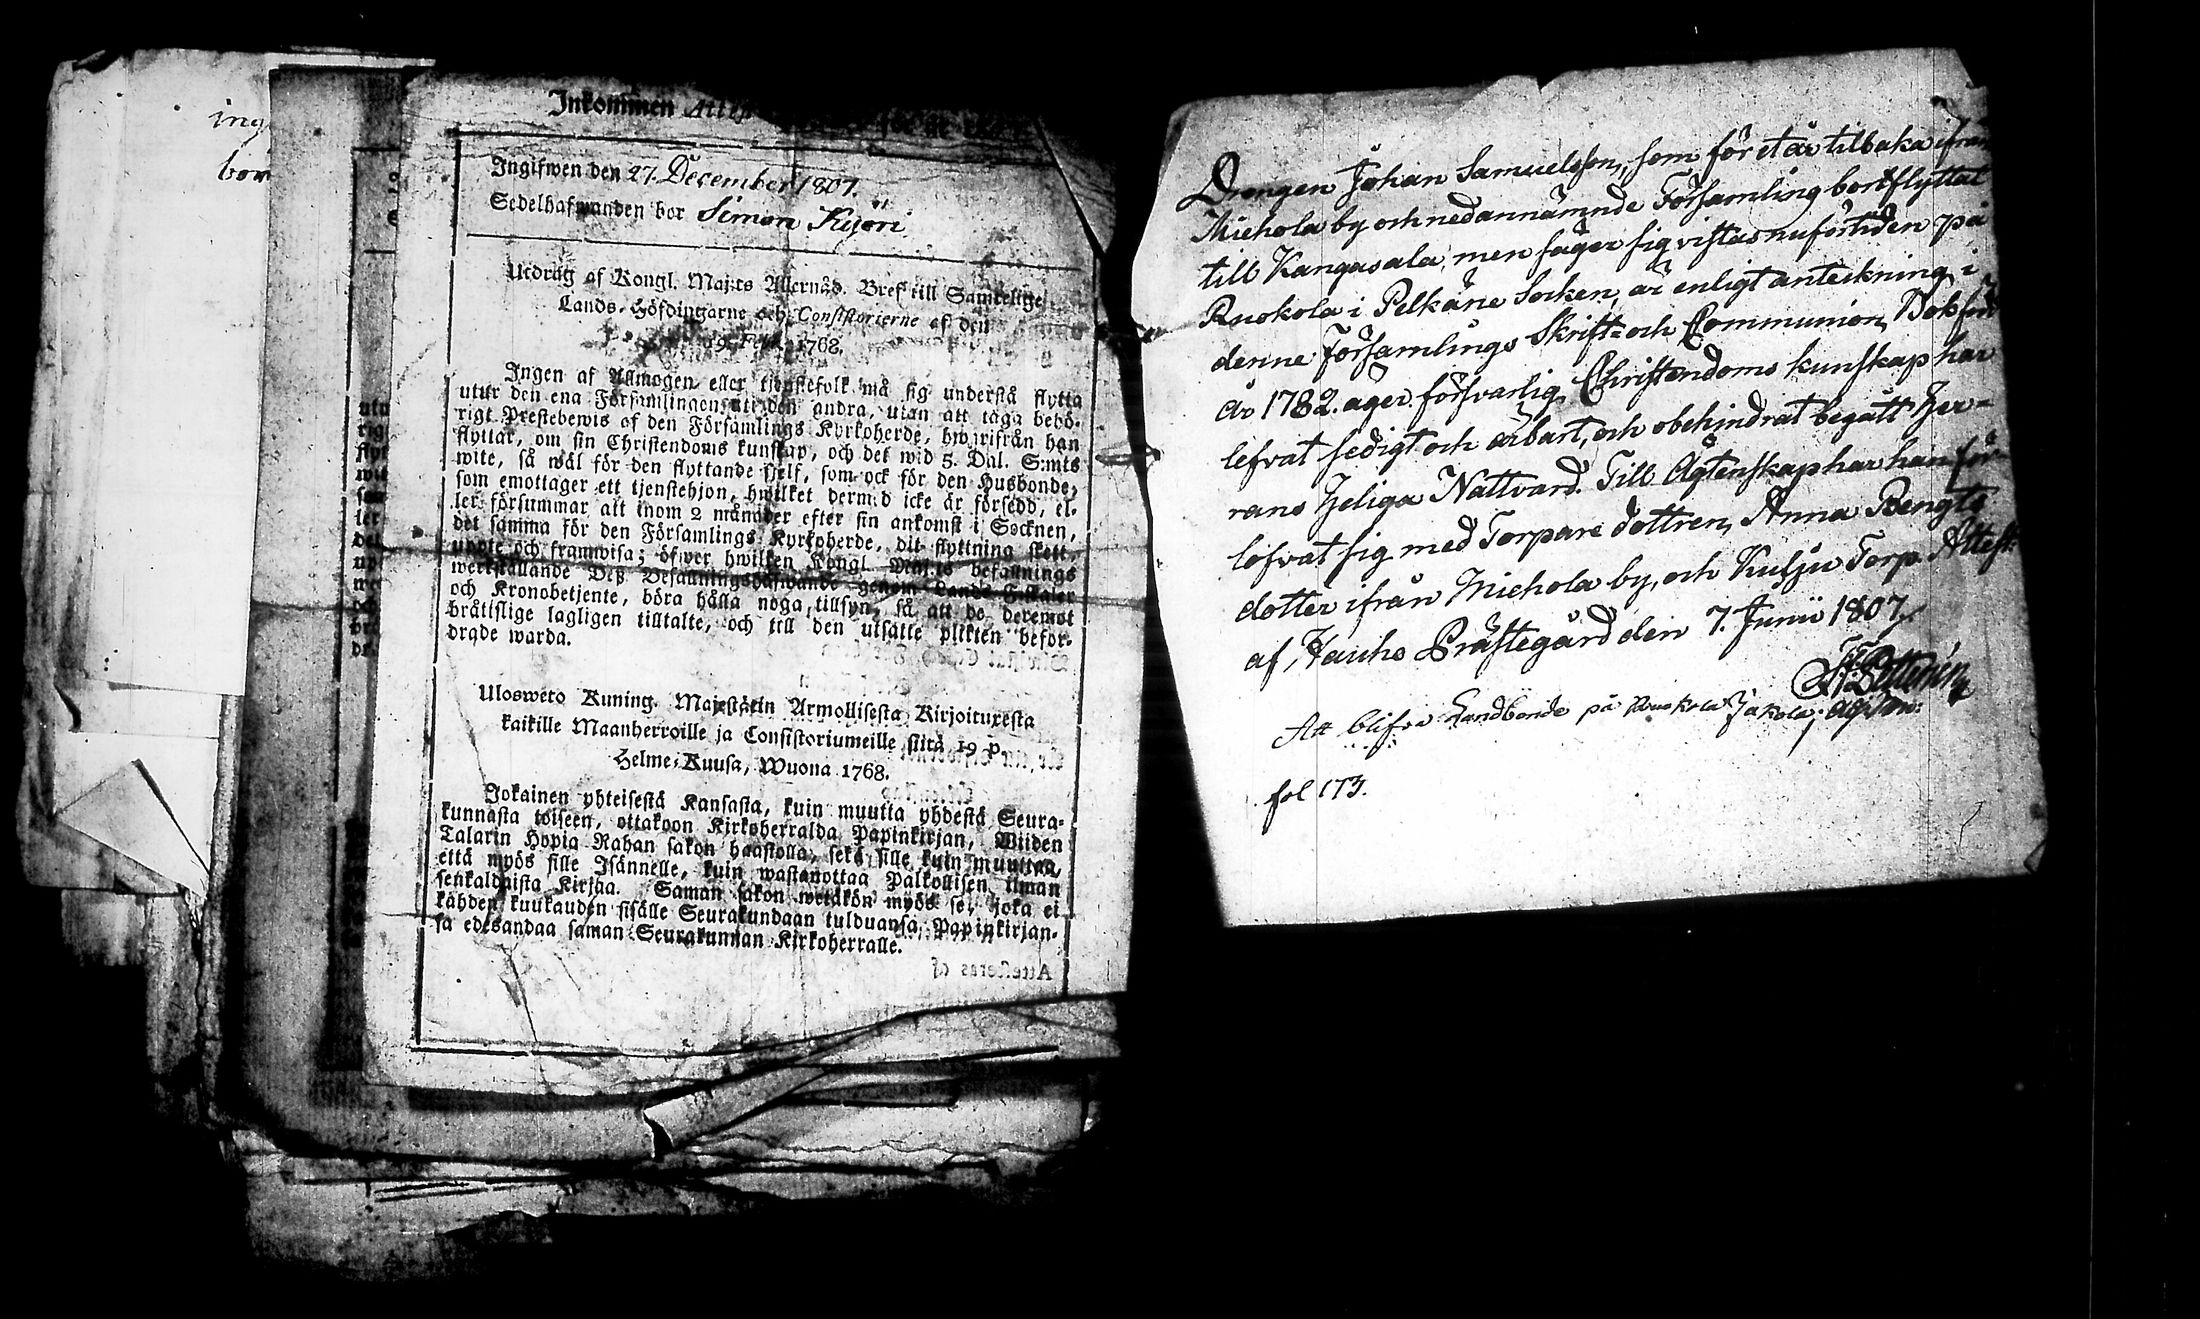 ing
bor
Inkommen Att
Ingifwen den 27. December 1807.
Sedelhafwanden bor Simon Kijöri
Utdrag af Kongl. Maj:ts Allernåd. Bref till Samtelige
Lands-Höfdingarne och Consistorierne af den
19. Febr. 1768.
Ingen af Allmogen eller tjenstefolk må sig understå flytta
utur den ena Församlingen uti den andra, utan att taga behö-
rigt Prestebewis af den Församlings Kyrkoherde, hwarifrån han
flyttar, om sin Christendoms kunskap, och det wid 5. Dal. S:mts
wite, så wäl för den flyttande sjelf, som ock för den Husbonde,
som emottager ett tjenstehjon, hwilket dermed icke är försedd, el-
ler försummar att inom 2 månader efter sin ankomst i Socknen,
det samma för den Församlings Kyrkoherde, dit flyttning skett,
uppte och framwisa; öfwer hwilken Kongl. Maj:ts befallnings
werkställande Deß Befallningshafwande genom Lands Fiskaler
och Kronobetjente, böra hålla noga tillsyn, så att de deremot
bråtislige lagligen tilltalte, och till den utsatte plikten befor-
drade warda.
Ulosweto Kuning. Majestätin Armollisesta Kirjoituxesta
kaikille Maanherroille ja Consistoriumeille siitä 19 p.
Helme-Kuusa, Wuona 1768.
Jokainen yhteisestä Kansasta, kuin muutta yhdestä Seura-
kunnasta toiseen, ottakoon Kirkoherralda Papinkirjan, Wiiden
Talarin Hopia Rahan sakon haastolla, sekä sille kuin muuttaa,
että myös sille Isännelle, kuin wastanottaa Palkollisen ilman
senkaldaista Kirjaa. Saman sakon wetäkön myös se, joka ei
kahden kuukauden sisälle Seurakundaan tulduansa, Papinkirjan-
sa edesandaa saman Seurakunnan Kirkoherralle.
Attesteras af
Drengen Johan Samuelsson, som för et år tilbaka ifrån
Miehola by och nedannämnde Församling bortflyttat
till Kangasala, men säger sig vistas nu för tiden på
Ruokola i Pelkäne Socken, är enligt anteckning i
denne Församlings Skrift- och Communion Bok född
år 1782. äger försvarlig Christendoms kunskap har
lefvat sedigt och ärbart, och obehindrat begått Her-
rans Heliga Nattvard. Till Ägtenskap har han för-
lofvat sig med Torpare dottren, Anna Bengts
dotter ifrån Miehola by, och Kulju Torp. Attest.
af, Hauho Prästegård den 7. Junii 1807.
Att blifva Landbonde på Ruokola Jakola,
fol 173.